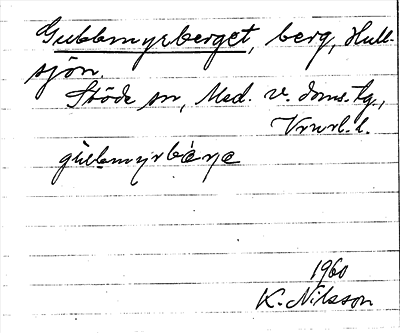 Gubbmyrberget, berg, Hull-
sjön.
Stöde sn, Med. v. doms. tg.,
Vrnrl. l.
gubmyrbærje
1960
K. Nilsson